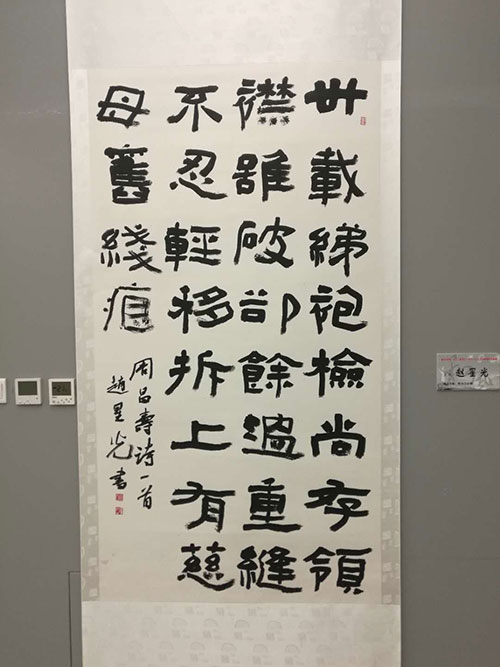 卅載綈袍檢尚存領
襟雖破卻餘溫重縫
不忍輕移拆上有慈
母舊綫痕
周昌壽詩一首
趙星光書
赵星光